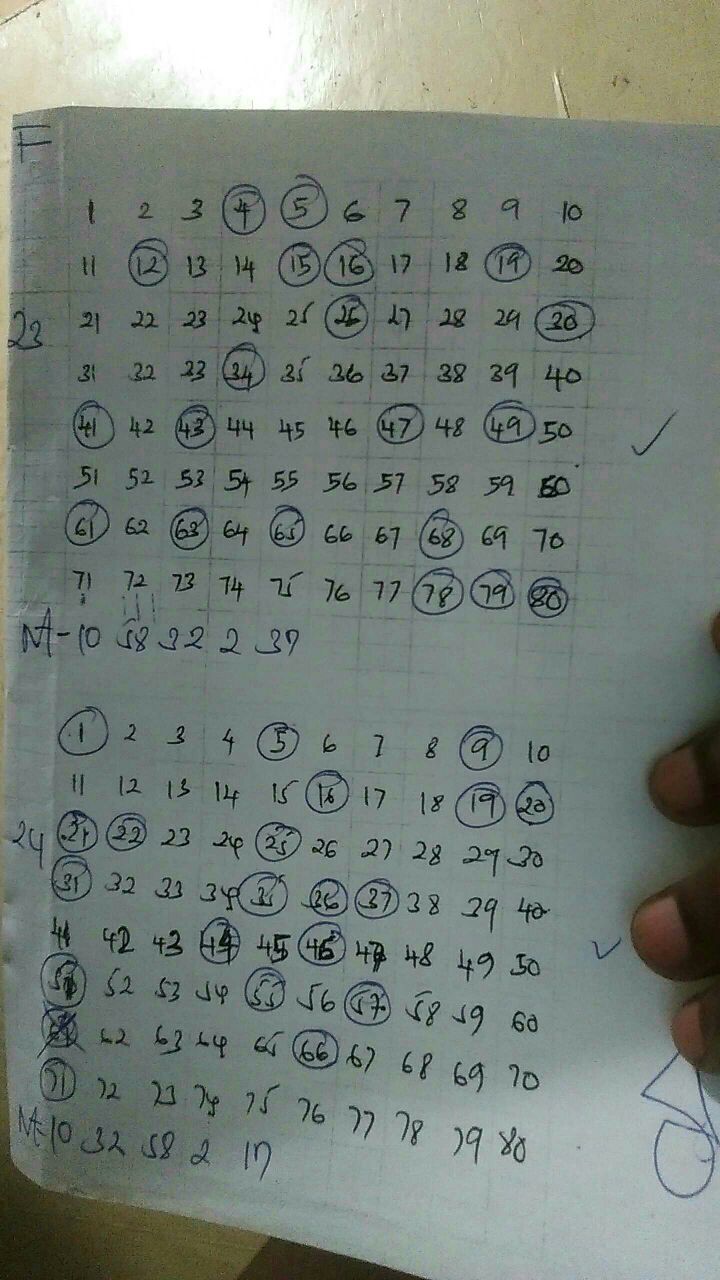 F
1 2 3 4 5 6 7 8 9 10
11 12 13 14 15 16 17 18 19 20
23
21 22 23 24 25 26 27 28 29 30
31 32 33 34 35 36 37 38 39 40
41 42 43 44 45 46 47 48 49 50
51 52 53 54 55 56 57 58 59 60
61 62 63 64 65 66 67 68 69 70
71 72 73 74 75 76 77 78 79 80
M-10 58 32 2 37
1 2 3 4 5 6 7 8 9 10
11 12 13 14 15 16 17 18 19 20
24
21 22 23 24 25 26 27 28 29 30
31 32 33 34 35 36 37 38 39 40
41 42 43 44 45 46 47 48 49 50
51 52 53 54 55 56 57 58 59 60
62 63 64 65 66 67 68 69 70
71 72 73 74 75 76 77 78 79 80
M-10 32 58 2 17